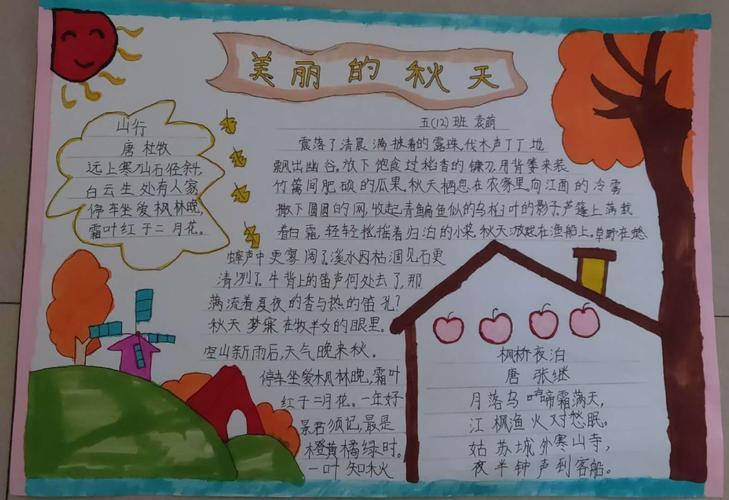 美丽的秋天
五(12)班 袁萌
山行
唐 杜牧
远上寒山石径斜,
白云生处有人家
停车坐爱枫林晚,
霜叶红于二月花。
震落了清晨满披着的露珠,伐木声丁丁地
飘出幽谷,放下饱食过稻香的镰刀,用背篓来装
竹篱间肥硕的瓜果,秋天栖息在农家里,向江面的冷雾
撒下圆圆的网,收起青鳊鱼似的乌桕叶的影子,芦篷上满载
着白霜,轻轻摇摇着归泊的小桨,秋天游戏在渔船上。草野在
蟋蟀声中更寥阔了溪水因枯涸见石更
清冽了,牛背上的笛声何处去了,那
满流着夏夜的香与热的笛孔?
秋天梦寐在牧羊女的眼里。
空山新雨后,天气晚来秋。
停车坐爱枫林晚,霜叶
红于二月花。一年好
景君须记,最是
橙黄橘绿时。
一叶知秋
枫桥夜泊
唐 张继
月落乌啼霜满天,
江枫渔火对愁眠。
姑苏城外寒山寺,
夜半钟声到客船。